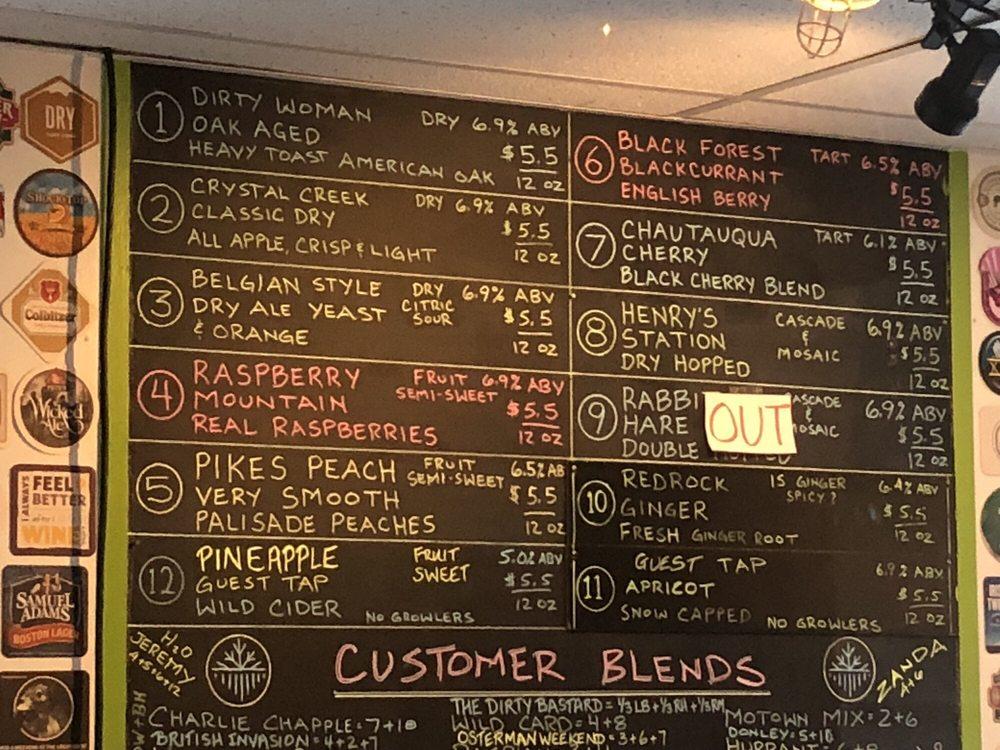 1 DIRTY WOMAN DRY 6.9% ABV
OAK AGED $5.5
HEAVY TOAST AMERICAN OAK 12 OZ
2 CRYSTAL CREEK DRY 6.9% ABV
CLASSIC DRY $5.5
ALL APPLE, CRISP & LIGHT 12 OZ
3 BELGIAN STYLE DRY 6.9% ABV
DRY ALE YEAST CITRIC SOUR $5.5
& ORANGE 12 OZ
4 RASPBERRY FRUIT 6.9% ABV
MOUNTAIN SEMI-SWEET $5.5
REAL RASPBERRIES 12 OZ
5 PIKES PEACH FRUIT 6.5% AB
VERY SMOOTH SEMI-SWEET $5.5
PALISADE PEACHES 12 OZ
12 PINEAPPLE FRUIT 5.0% ABV
GUEST TAP SWEET $5.5
WILD CIDER NO GROWLERS 12 OZ
6 BLACK FOREST TART 6.5% ABV
BLACKCURRANT $5.5
ENGLISH BERRY 12 OZ
7 CHAUTAUQUA TART 6.1% ABV
CHERRY $5.5
BLACK CHERRY BLEND 12 OZ
8 HENRY'S CASCADE 6.9% ABV
STATION & MOSAIC $5.5
DRY HOPPED 12 OZ
9 RABBI OUT ASCADE 6.9% ABV
HARE & OSAIC $5.5
DOUBLE 12 OZ
10 REDROCK IS GINGER SPICY? 6.4% ABV
GINGER $5.5
FRESH GINGER ROOT 12 OZ
11 GUEST TAP 6.9% ABV
APRICOT $5.5
SNOW CAPPED NO GROWLERS 12 OZ
CUSTOMER BLENDS
H2O
JEREMY
4+5+6+12
ZANDA
4+6
CHARLIE CHAPPLE=7+10
BRITISH INVASION=4+2+7
THE DIRTY BASTARD=1/3 LB+1/3 RH+1/3 RM
WILD CARD=4+8
OSTERMAN WEEKEND=3+6+7
MOTOWN MIX=2+6
DONLEY=5+10
DRY
SHOCK TOP
Golbitzer
Wicked Ale
I ALWAYS
FEEL
BETTER
after
WINE
SAMUEL
ADAMS
BOSTON LAGER